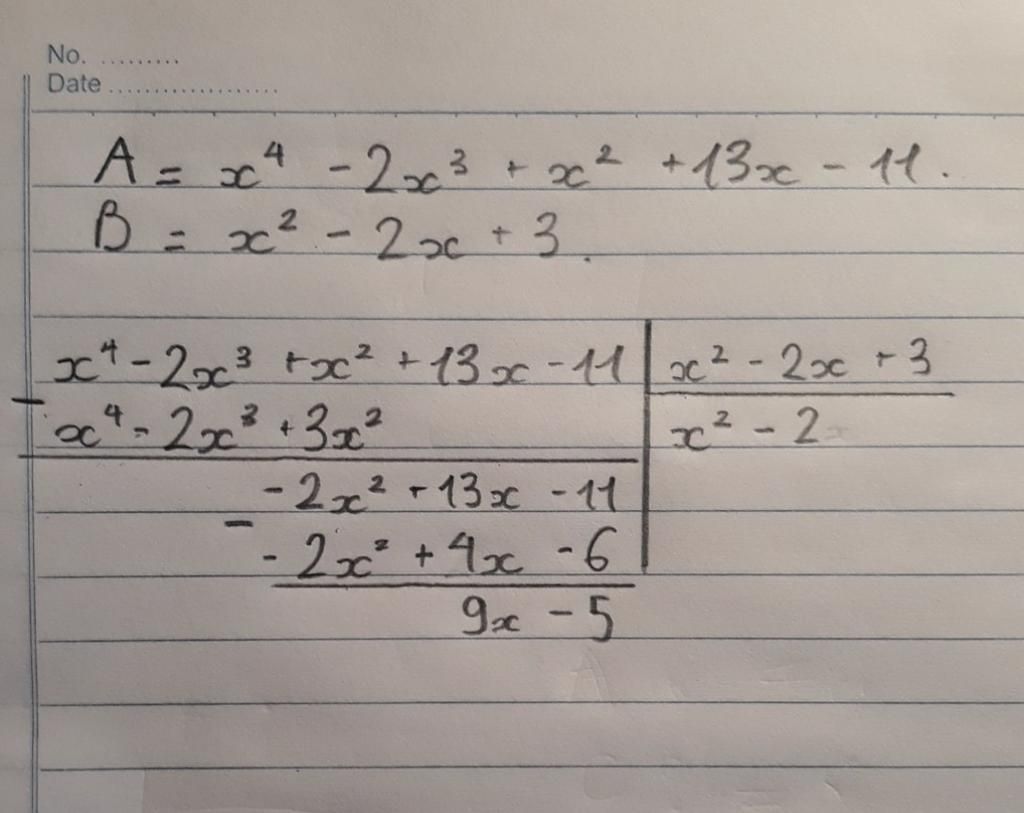 No. .........
Date ...................
A = x⁴ - 2x³ + x² + 13x - 11.
B = x² - 2x + 3.
x⁴ - 2x³ + x² + 13x - 11 | x² - 2x + 3
- x⁴ - 2x³ + 3x² | x² - 2
-2x² + 13x - 11
- -2x² + 4x - 6
9x - 5